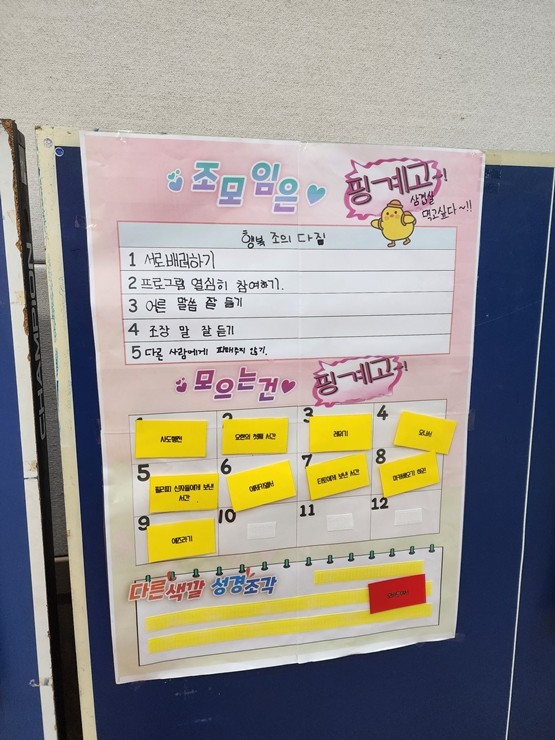 조모임은 핑계고!
삼겹살
먹고싶다~!!
행복 조의 다짐
1 서로배려하기
2 프로그램 열심히 참여하기.
3 어른 말씀 잘 듣기
4 조장 말 잘 듣기
5 다른 사람에게 피해주지 않기.
모으는건 핑계고!
1 사도행전
2 요한의 첫째 서간
3 레위기
4 요나서
5 필리피 신자들에게 보낸
서간
6 에제키엘서
7 티토에게 보낸 서간
8 마카베오기 하권
9 에즈라기
10
11
12
다른색깔 성경조각